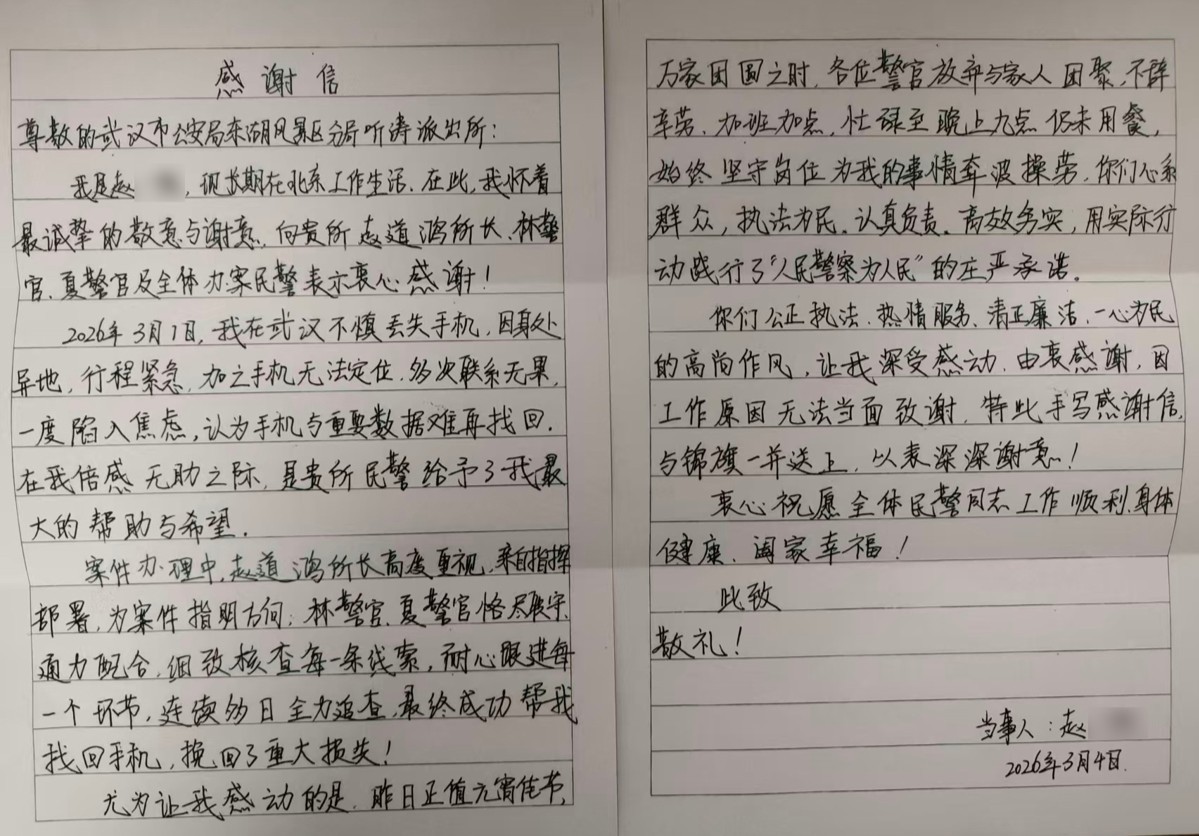 感谢信
尊敬的武汉市公安局东湖风景区分局听涛派出所：
我是赵，现长期在北京工作生活．在此，我怀着
最诚挚的敬意与谢意，向贵所赵道鸿所长、林警
官、夏警官及全体办案民警表示衷心感谢！
2026年3月1日，我在武汉不慎丢失手机，因身处
异地，行程紧急，加之手机无法定位，多次联系无果，
一度陷入焦虑，认为手机与重要数据难再找回．
在我倍感无助之际，是贵所民警给予了我最
大的帮助与希望．
案件办理中，赵道鸿所长高度重视，亲自指挥
部署，为案件指明方向；林警官、夏警官恪尽职守、
通力配合，细致核查每一条线索，耐心跟进每
一个环节，连续多日全力追查，最终成功帮我
找回手机，挽回了重大损失！
尤为让我感动的是，昨日正值元宵佳节，
万家团圆之时，各位警官放弃与家人团聚，不辞
辛劳、加班加点，忙碌至晚上九点仍未用餐，
始终坚守岗位为我的事情奔波操劳，你们心系
群众，执法为民、认真负责、高效务实，用实际行
动践行了“人民警察为人民”的庄严承诺。
你们公正执法、热情服务、清正廉洁、一心为民
的高尚作风，让我深受感动、由衷感谢，因
工作原因无法当面致谢，特此手写感谢信，
与锦旗一并送上，以表深深谢意！
衷心祝愿全体民警同志工作顺利、身体
健康、阖家幸福！
此致
敬礼！
当事人：赵
2026年3月4日．